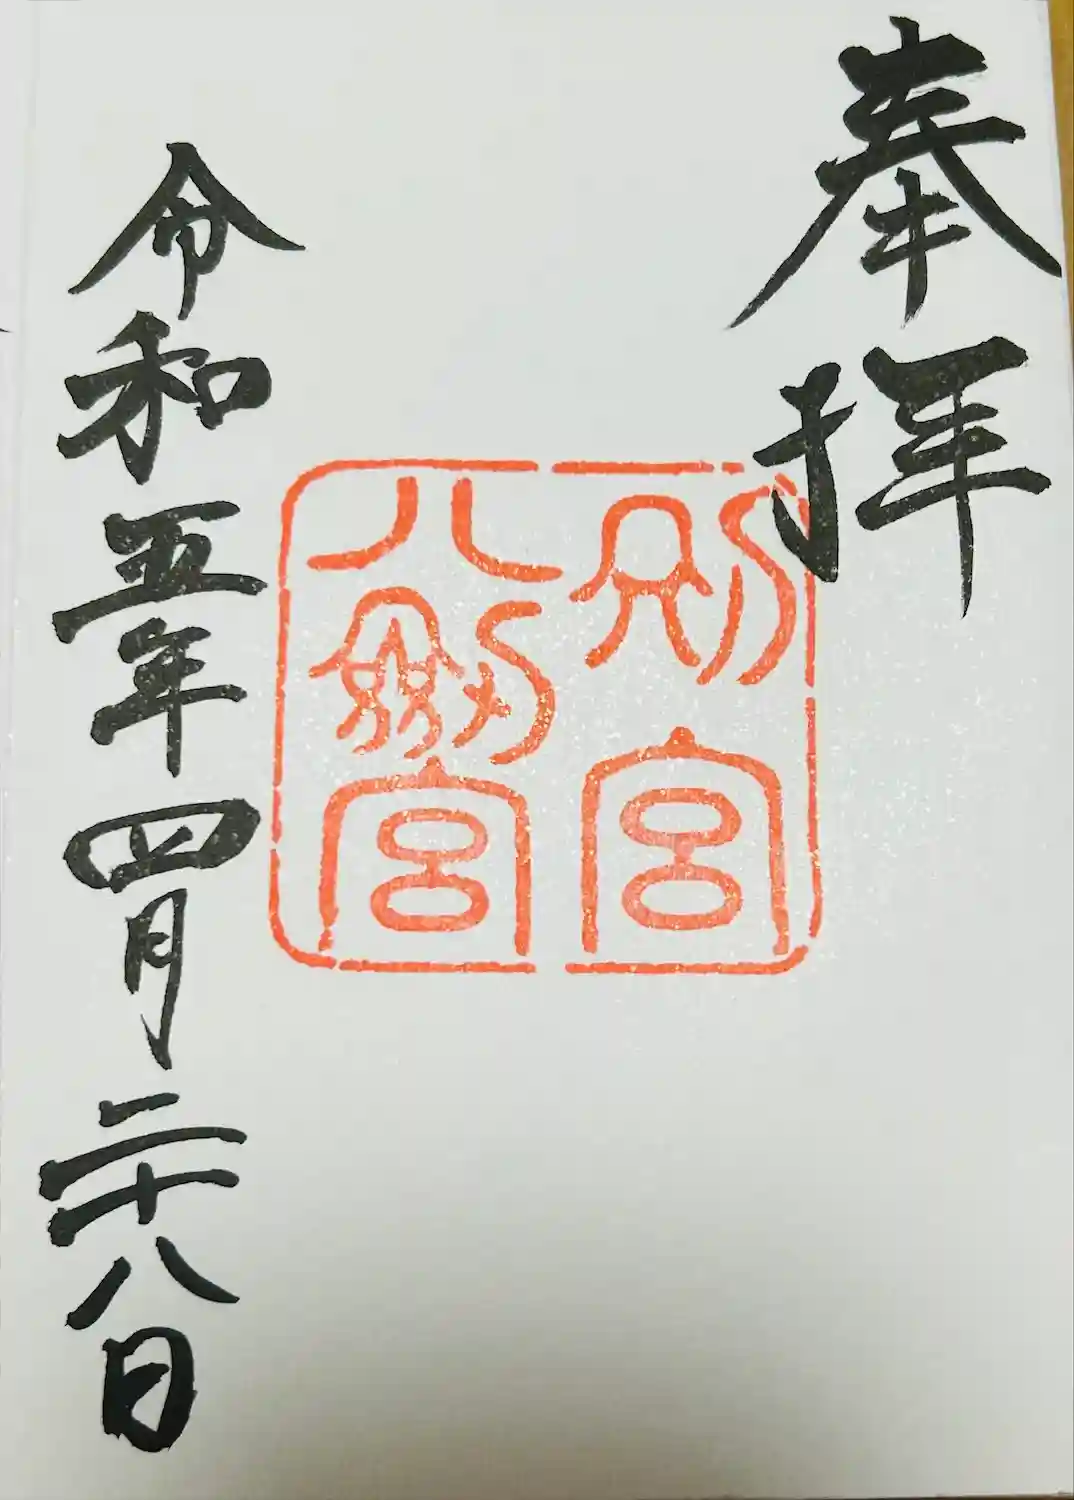 奉拝
別宮
八劔宮
令和五年四月二十八日